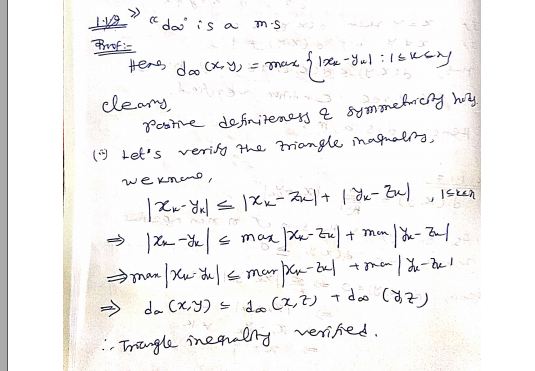 1.1.2 >> "d∞" is a m.s
Proof:-
Here, d∞ (x,y) = max { |xk - yk| : 1≤k≤n}
clearly,
positive definiteness & symmetricity holds
(iii) Let's verify the triangle inequality,
we know,
|xk - yk| ≤ |xk - zk| + |yk - zk| , 1≤k≤n
⇒ |xk - yk| ≤ max |xk - zk| + max |yk - zk|
⇒ max |xk - yk| ≤ max |xk - zk| + max |yk - zk|
⇒ d∞ (x,y) ≤ d∞ (x,z) + d∞ (y,z)
∴ Triangle inequality verified.